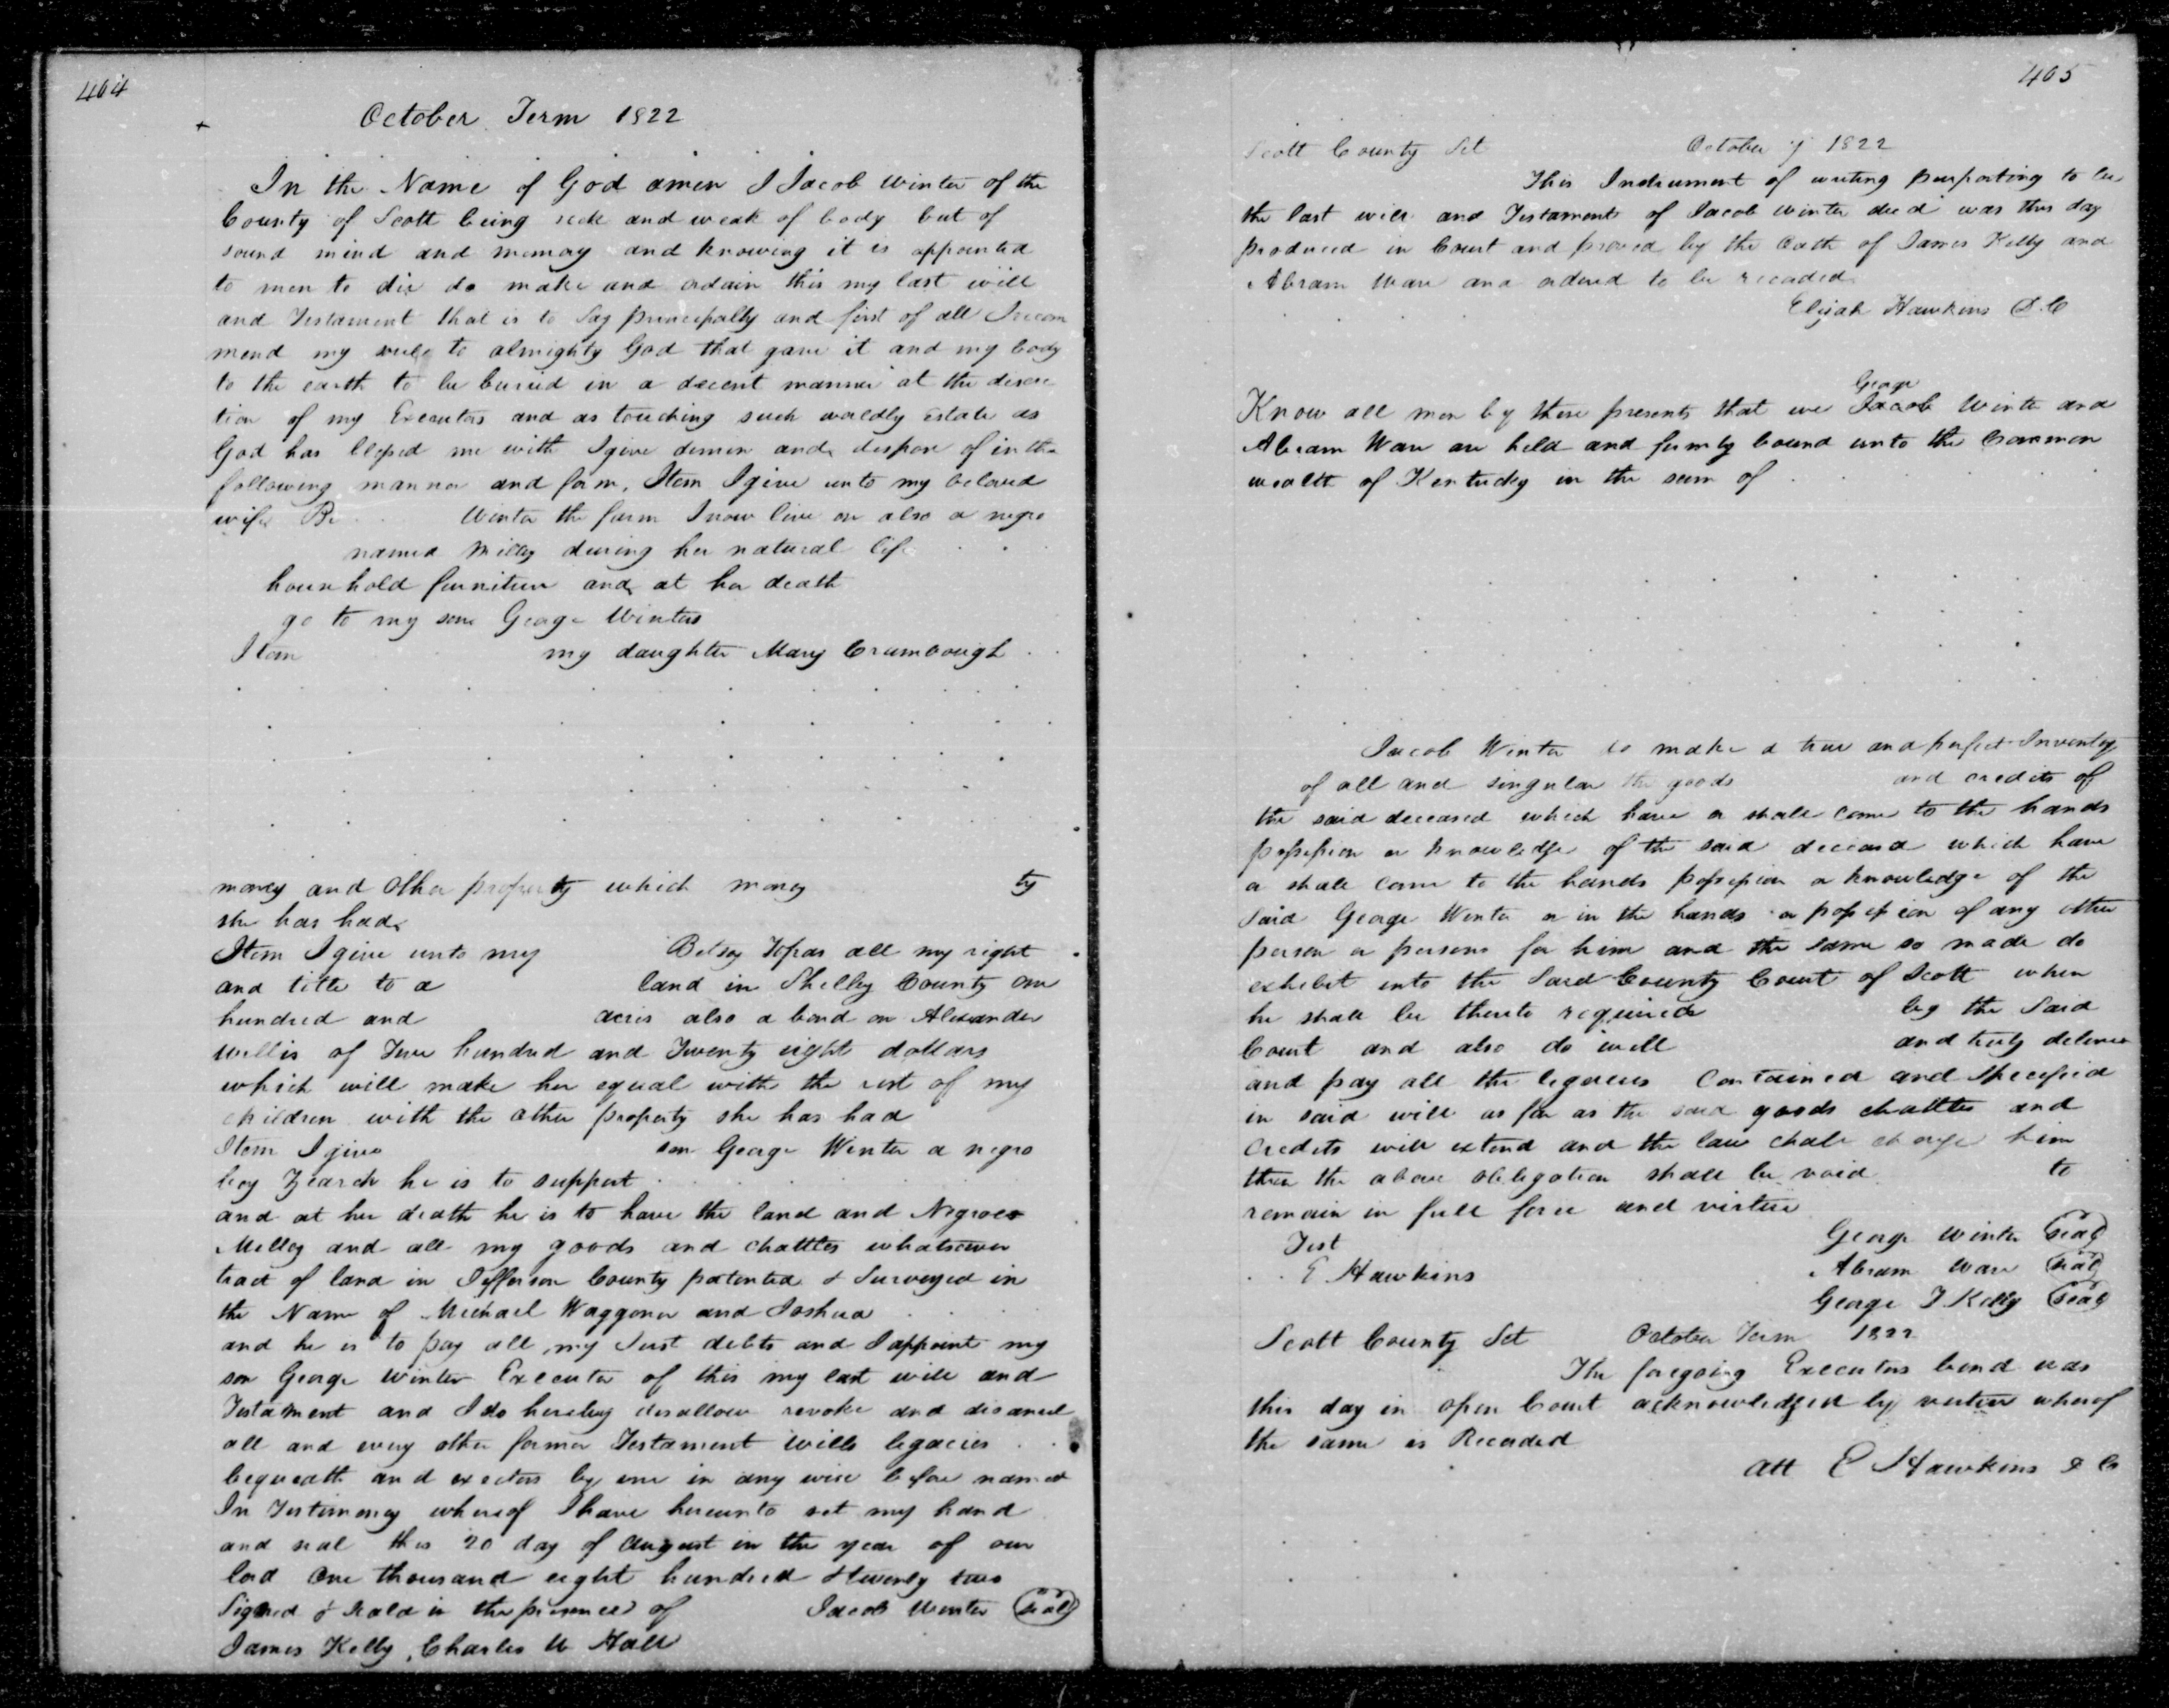 464
October Term 1822
In the Name of God amen I Jacob Winter of the
County of Scott being sick and weak of body but of
sound mind and memory and knowing it is appointed
to men to die do make and ordain this my last will
and Testament that is to say principally and first of all I recom
mend my soule to almighty God that gave it and my body
to the earth to be buried in a decent manner at the discre
tion of my Executors and as touching such worldly estate as
God has blessed me with I give demise and dispose of in the
following manner and form. Item I give unto my beloved
wife Be Winter the farm I now live on also a negro
named Milly during her natural life
household furniture and at her death
go to my son George Winters
Item my daughter Mary Crumbough
money and other property which money ty
she has had
Item I give unto my Betsy all my right
and title to a land in Shelby County one
hundred and acres also a bond on Alexander
Willis of Two hundred and Twenty eight dollars
which will make her equal with the rest of my
children with the other property she has had
Item I give son George Winter a negro
boy he is to support
and at her death he is to have the land and Negroes
Milley and all my goods and chattles whatsoever
tract of land in Jefferson County patented & Surveyed in
the Name of Michael Waggoner and Joshua
and he is to pay all my Just debts and I appoint my
son George Winter Executor of this my last will and
Testament and I do hereby disallow revoke and disanul
all and every other former Testament Wills legacies
bequeath and exectors by me in any wise before named
In Testimony whereof I have hereunto set my hand
and seal this 20 day of August in the year of our
lord One thousand eight hundred & twenty two
Signed & Seald in the presence of Jacob Winter (seal)
James Kelly, Charles W Hall
465
Scott County Sct October 1822
This Instrument of writing purporting to be
the last will and Testament of Jacob Winter decd was this day
produced in Court and proved by the Oath of James Kelly and
Abram Ware and ordered to be recorded
Elijah Hawkins D.C
George
Know all men by these presents that we Jacob Winter and
Abram Ware are held and firmly bound unto the Common
wealth of Kentucky in the sum of
Jacob Winter do make a true and perfect Inventory
of all and singular the goods and credits of
the said deceased which have or shall come to the hands
possession or knowledge of the said deceased which have
or shall come to the hands possession or knowledge of the
said George Winter or in the hands or possession of any other
person or persons for him and the same so made do
exhibit into the Said County Court of Scott when
he shall be thereto required by the Said
Court and also do well and truly deliver
and pay all the legacies contained and specified
in said will as far as the said goods chattles and
credits will extend and the law shall charge him
then the above obligation shall be void to
remain in full force and virtue
Test George Winter (seal)
E Hawkins Abram Ware (seal)
George T Kelly (seal)
Scott County Sct October Term 1822
The foregoing Executors bond was
this day in open Court acknowledged by virtue whereof
the same is Recorded
Att E Hawkins D C